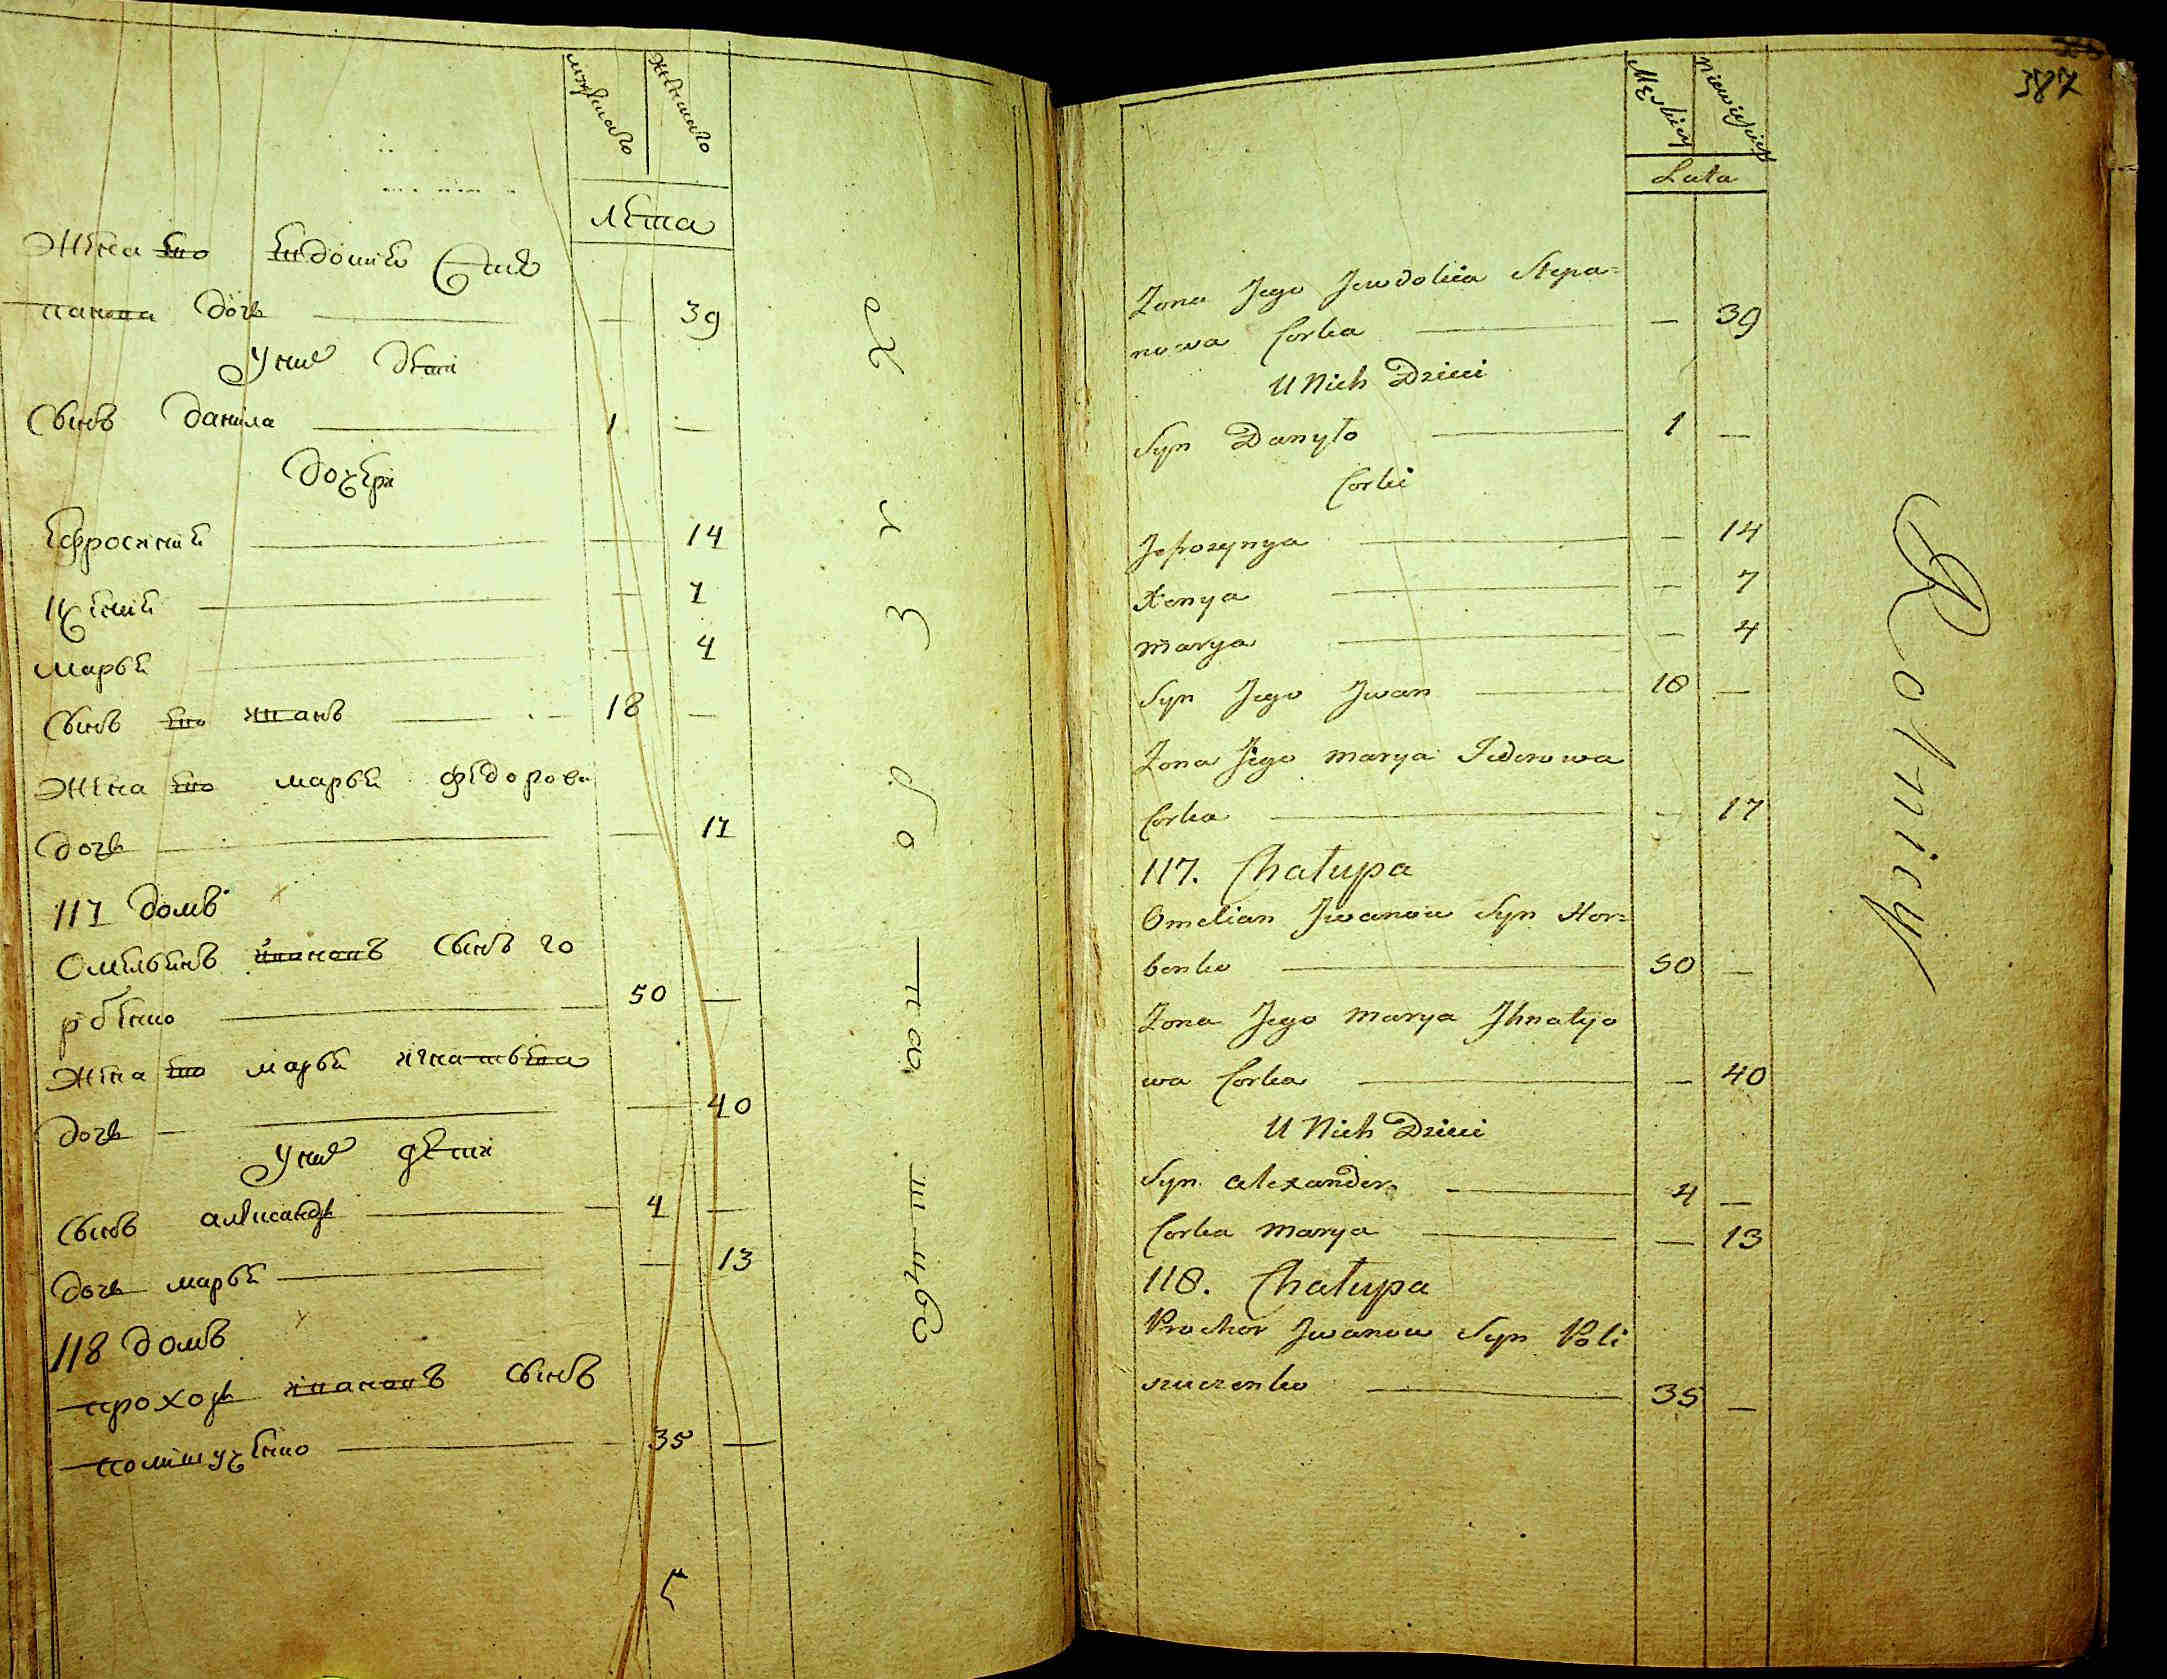 мужскаго
женскаго
лета
Жена его евдокия Сте
панова дочь — 39
У них дети
Сынъ данила 1 —
дочери
ефросиния — 14
ксения — 7
марья — 4
Сынъ его иванъ 18 —
Жена его марья федорова
дочь — 17
117 домъ
Омельянъ ивановъ сынъ го
рбенко 50 —
Жена его марья игнатьева
дочь — 40
У них дети
Сынъ александръ 4 —
дочь марья — 13
118 домъ
прохоръ ивановъ сынъ
полищученко 35 —
387
Męskiey
Niewieściey
Lata
Zona Jego Jewdokia Stepa=
nowa Corka — 39
U Nich Dzieci
Syn Danyło 1 —
Corki
Jefrozynya — 14
Xenya — 7
Marya — 4
Syn Jego Jwan 18 —
Zona Jego Marya Fedorowa
Corka — 17
117. Chałupa
Omelian Jwanow Syn Hor=
benko 50 —
Zona Jego Marya Jhnatyo
wa Corka — 40
U Nich Dzieci
Syn Alexander 4 —
Corka Marya — 13
118. Chałupa
Prochor Jwanow Syn Poli
szuczenko 35 —
Rolnicy